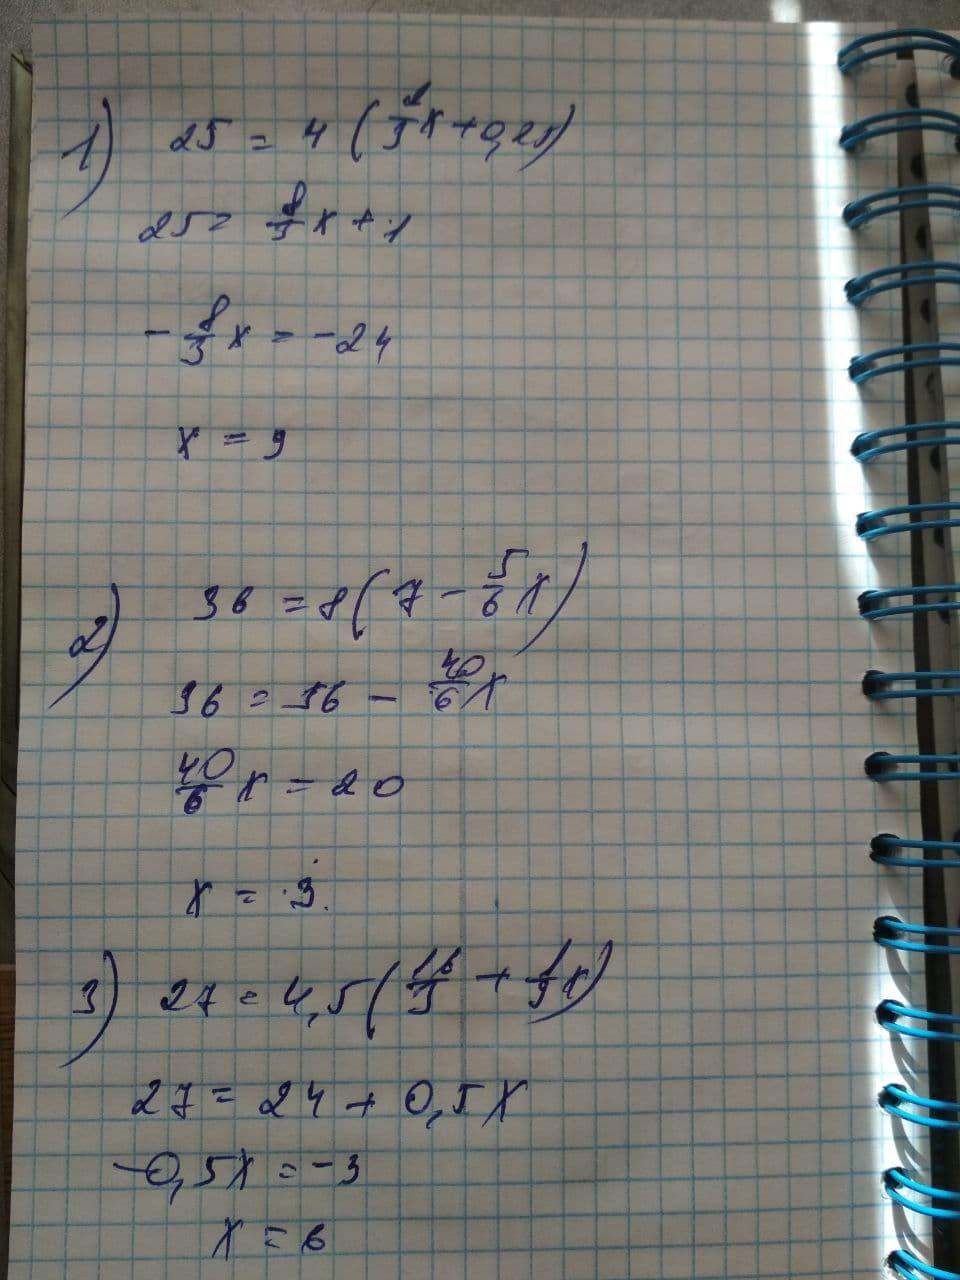 1) 25 = 4 (2/3 x + 0,25)
25 = 8/3 x + 1
- 8/3 x = -24
x = 9
2) 36 = 8 (7 - 5/6 x)
36 = 56 - 40/6 x
40/6 x = 20
x = 3
3) 27 = 4,5 (16/3 + 1/9 x)
27 = 24 + 0,5x
-0,5x = -3
x = 6